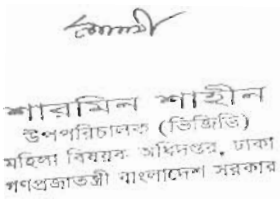 শারমিন শাহীন
উপপরিচালক (ভিজিডি)
মহিলা বিষয়ক অধিদপ্তর, ঢাকা
গণপ্রজাতন্ত্রী বাংলাদেশ সরকার